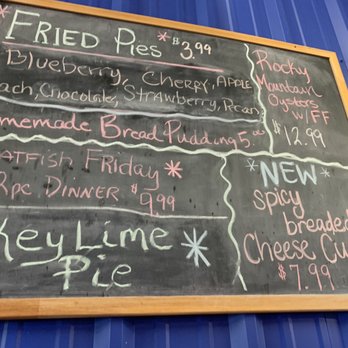 * FRIED PIES * $3.99
Blueberry, Cherry, Apple
each, Chocolate, Strawberry, Pecan
omemade Bread Pudding 5.00
atfish Friday *
2pc Dinner $9.99
Key Lime *
Pie
Rocky
Mountain
Oysters
w/FF
$12.99
*NEW*
Spicy
breaded
Cheese Cu
$7.99